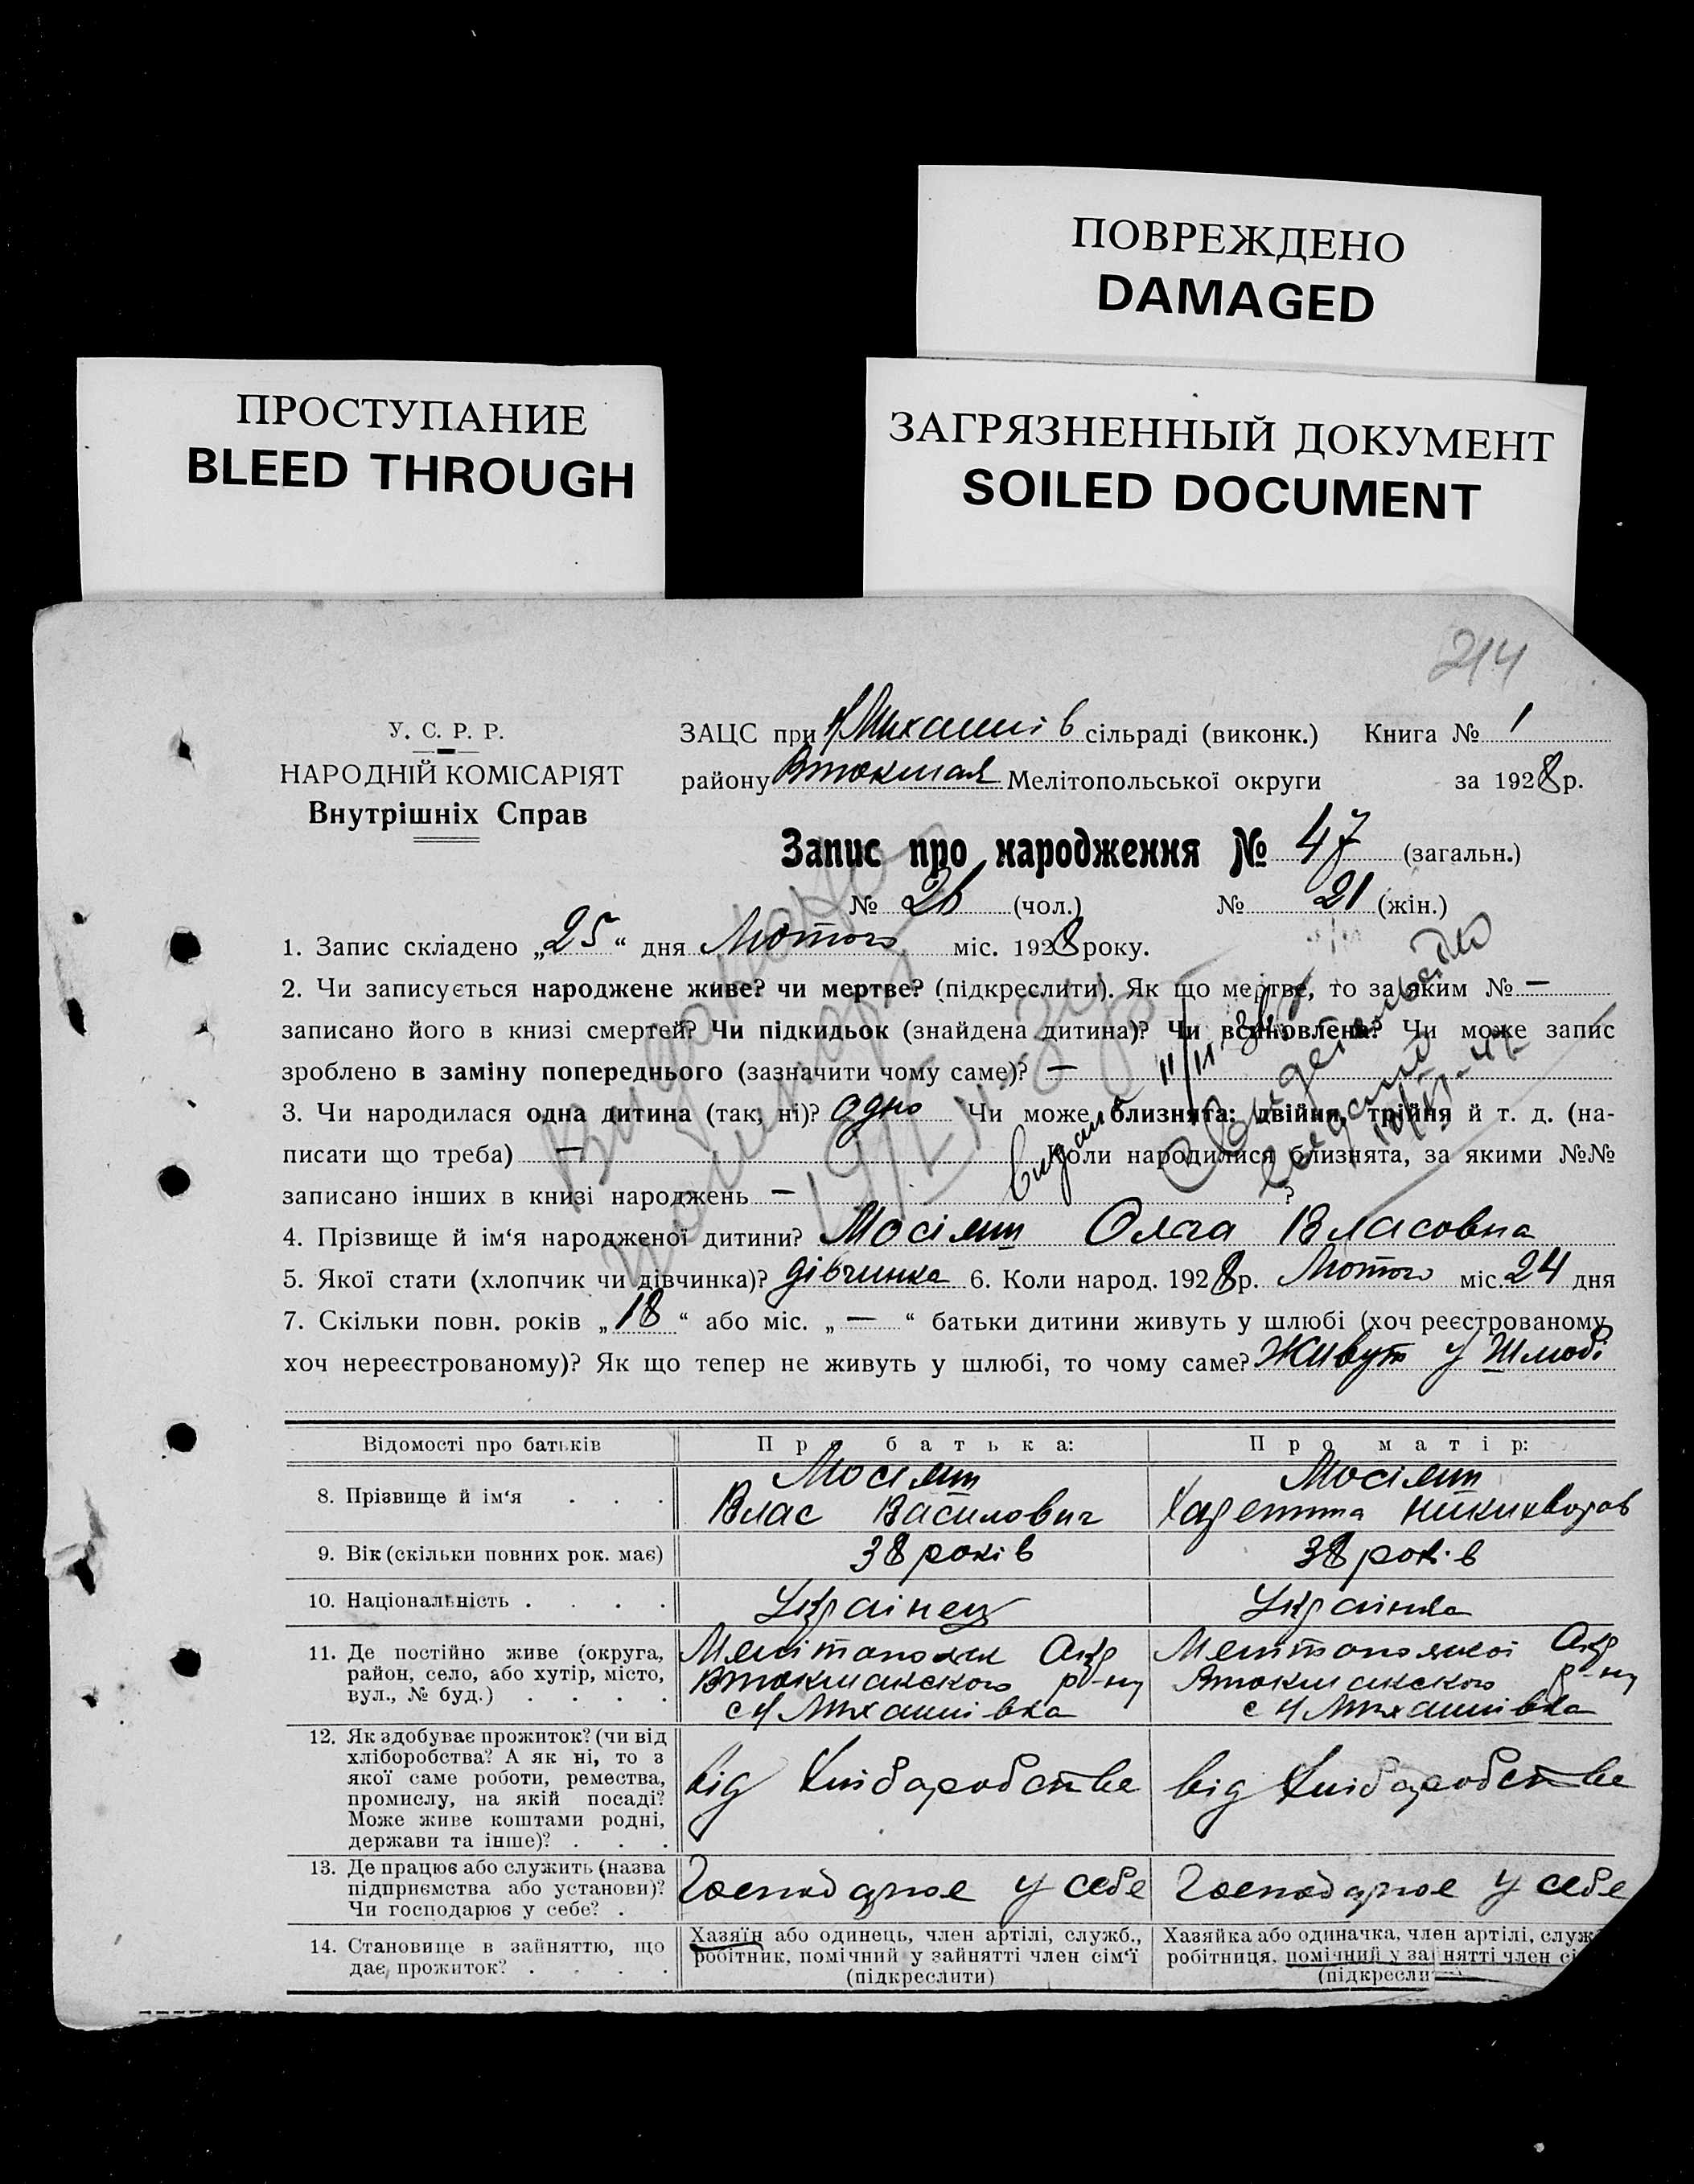 ПОВРЕЖДЕНО
DAMAGED
ПРОСТУПАНИЕ
BLEED THROUGH
ЗАГРЯЗНЕННЫЙ ДОКУМЕНТ
SOILED DOCUMENT
214
У. С. Р. Р.
НАРОДНІЙ КОМІСАРІЯТ
Внутрішніх Справ
ЗАЦС при сільраді (виконк.) Книга № 1
району Втокмак Мелітопольської округи за 1928 р.
Запис про народження № 47 (загальн.)
№ 26 (чол.) № 21 (жін.)
1. Запис складено „25“ дня Лютого міс. 1928 року.
2. Чи записується народжене живе? чи мертве? (підкреслити). Як що мертве, то за яким № —
записано його в книзі смертей? Чи підкидьок (знайдена дитина)? Чи всиновлена? Чи може запис
зроблено в заміну попереднього (зазначити чому саме)? —
3. Чи народилася одна дитина (так, ні)? одно Чи може близнята: двійни, трійня й т. д. (на-
писати що треба) — Коли народилися близнята, за якими №№
записано інших в книзі народжень — ?
4. Прізвище й ім‘я народженої дитини? Ольга Власовна
5. Якої стати (хлопчик чи дівчинка)? дівчинка 6. Коли народ. 1928 р. Лютого міс. 24 дня
7. Скільки повн. років „18“ або міс. „—“ батьки дитини живуть у шлюбі (хоч реєстрованому,
хоч нереєстрованому)? Як що тепер не живуть у шлюбі, то чому саме? Живуть у Шлюбі
Відомості про батьків Про батька: Про матір:
8. Прізвище й ім‘я . . . Влас Василович
9. Вік (скільки повних рок. має) 38 років 38 років
10. Національність . . . . Українец Українка
11. Де постійно живе (округа,
район, село, або хутір, місто,
вул., № буд.) . . . .
Втокмакского р-ну
Втокмакского р-ну
12. Як здобуває прожиток? (чи від
хліборобства? А як ні, то з
якої саме роботи, ремества,
промислу, на якій посаді?
Може живе коштами родні,
держави та інше)? . . .
від Хліборобства від Хліборобства
13. Де працює або служить (назва
підприємства або установи)?
Чи господарює у себе? .
Господарює у себе Господарює у себе
14. Становище в зайняттю, що
дає прожиток? . . . .
Хазяїн або одинець, член артілі, служб.,
робітник, помічний у зайнятті член сім‘ї
(підкреслити)
Хазяйка або одиначка, член артілі, служ
робітниця, помічний у зайнятті член сі
(підкресли